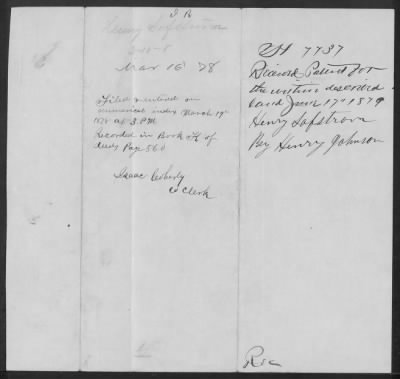 J B
Henry Lofstrom
2-10-8
Mar 16 78
Filed & entered on
numerical index March 19th
1878 at 3 P.M.
Recorded in Book of
deeds Page 560
Isaac
Co Clerk
H 7737
Received Patent for
the within described
land June 17th 1879
Henry Lofstrom
By Henry Johnson
Rec